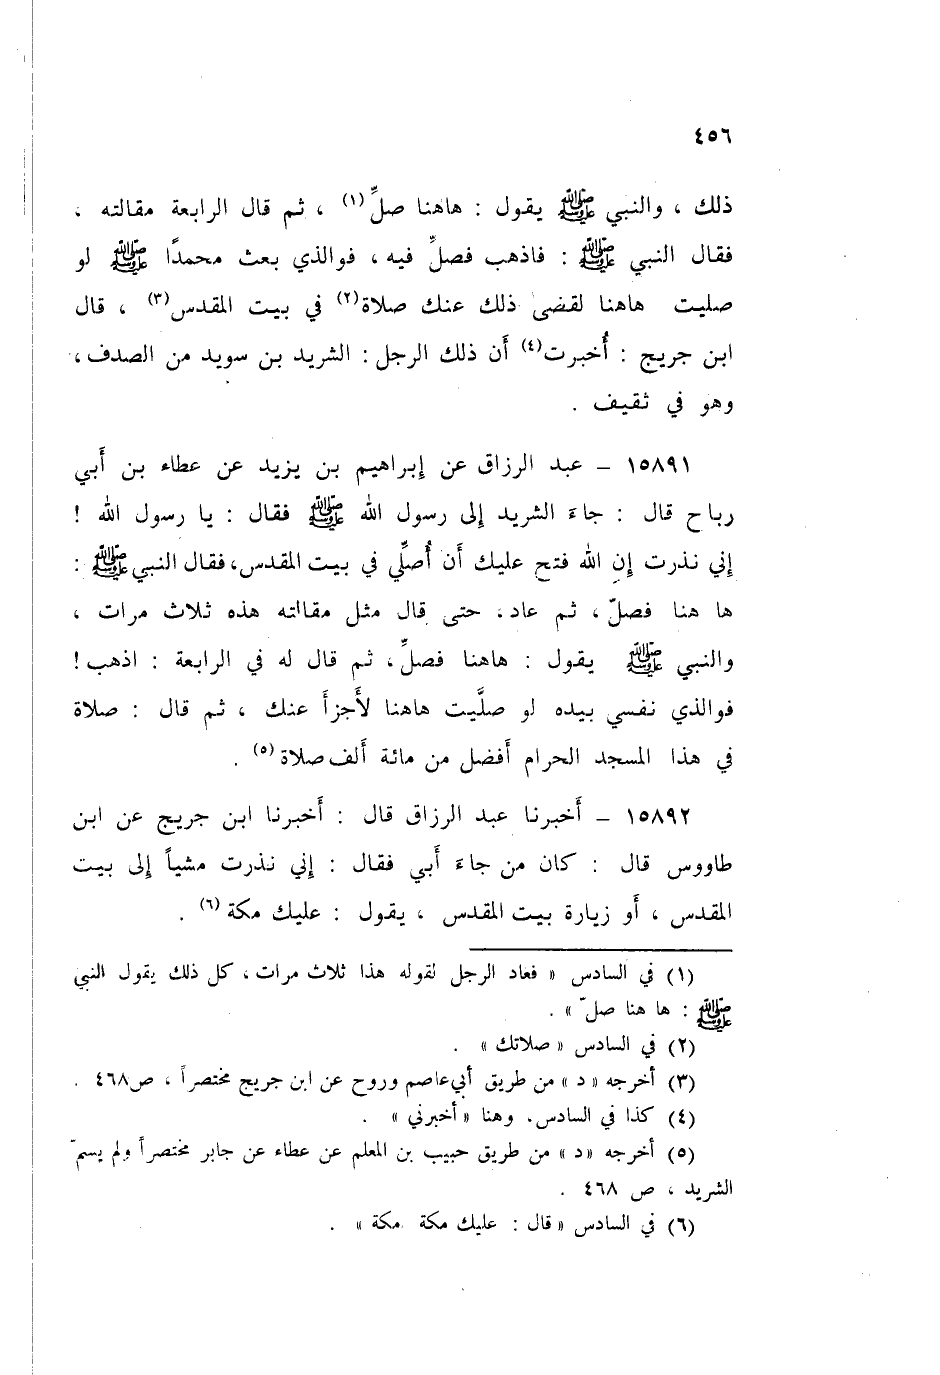 ٤٥٦
ذلك ، والنبي ﷺ يقول : هاهنا صلِّ(١) ، ثم قال الرابعة مقالته ،
فقال النبي ﷺ : فاذهب فصلِّ فيه ، فوالذي بعث محمدًا ﷺ لو
صليت هاهنا لقضى ذلك عنك صلاة(٢) في بيت المقدس(٣) ، قال
ابن جريج : أُخبرت(٤) أَن ذلك الرجل : الشريد بن سويد من الصدف ،
وهو في ثقيف .
١٥٨٩١ – عبد الرزاق عن إبراهيم بن يزيد عن عطاء بن أَبي
رباح قال : جاءَ الشريد إلى رسول الله ﷺ فقال : يا رسول الله !
إني نذرت إن الله فتح عليك أَن أُصلِّي في بيت المقدس، فقال النبي ﷺ :
ها هنا فصلّ ، ثم عاد، حتى قال مثل مقالته هذه ثلاث مرات ،
والنبي ﷺ يقول : هاهنا فصلِّ ، ثم قال له في الرابعة : اذهب !
فوالذي نفسي بيده لو صلَّيت هاهنا لأَجزأَ عنك ، ثم قال : صلاة
في هذا المسجد الحرام أَفضل من مائة أَلف صلاة(٥) .
١٥٨٩٢ – أَخبرنا عبد الرزاق قال : أَخبرنا ابن جريج عن ابن
طاووس قال : كان من جاءَ أَبي فقال : إني نذرت مشياً إلى بيت
المقدس ، أَو زيارة بيت المقدس ، يقول : عليك مكة(٦) .
(١) في السادس « فعاد الرجل لقوله هذا ثلاث مرات ، كل ذلك يقول النبي
ﷺ : ها هنا صلّ » .
(٢) في السادس « صلاتك » .
(٣) أخرجه « د » من طريق أبي عاصم وروح عن ابن جريج مختصراً ، ص٤٦٨ .
(٤) كذا في السادس، وهنا « أخبرني » .
(٥) أخرجه «د» من طريق حبيب بن المعلم عن عطاء عن جابر مختصراً ولم يسمّ
الشريد ، ص ٤٦٨ .
(٦) في السادس « قال : عليك مكة مكة » .